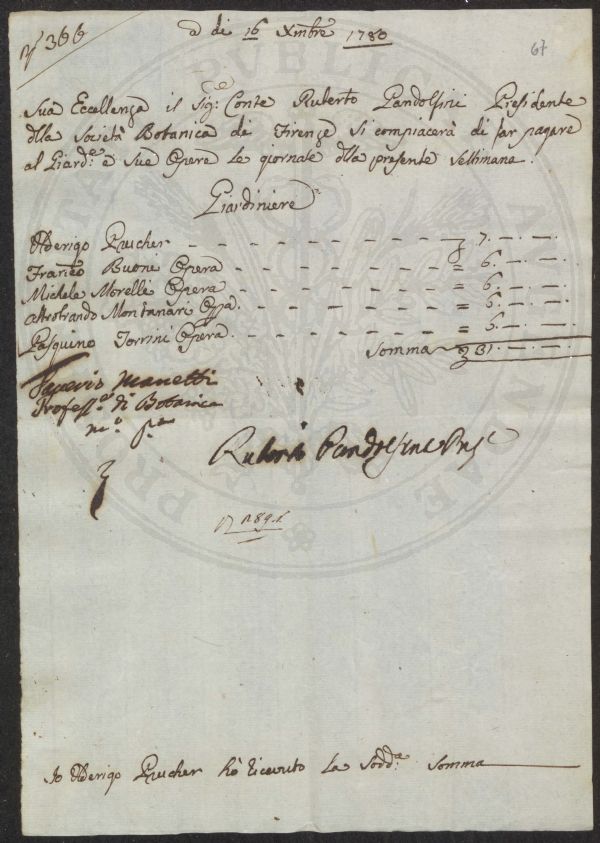 N° 366
a di 16 Xmbre 1780
67
Sua Eccellenza il Sig:re Conte Ruberto Pandolfini Presidente
dlla Società Botanica di Firenze si compiacerà di far pagare
al Giard:e e sue Opere le giornate dlla presente Settimana.
Giardiniere
Olderigo Prucher 7.—.—.
Franco Buoni Opera = 6.—.—.
Michele Morelli Opera = 6.—.—.
Montanari Oppa. = 6.—.—.
Pasquino Torrini Opera = 6.—.—.
Somma 31.—.—.
Saverio Manetti
Profess.e di Botanica
m.o p.a
Ruberto Pandolfini Pres.e
Io Olderigo Prucher hò ricevuto la Sodd:a Somma